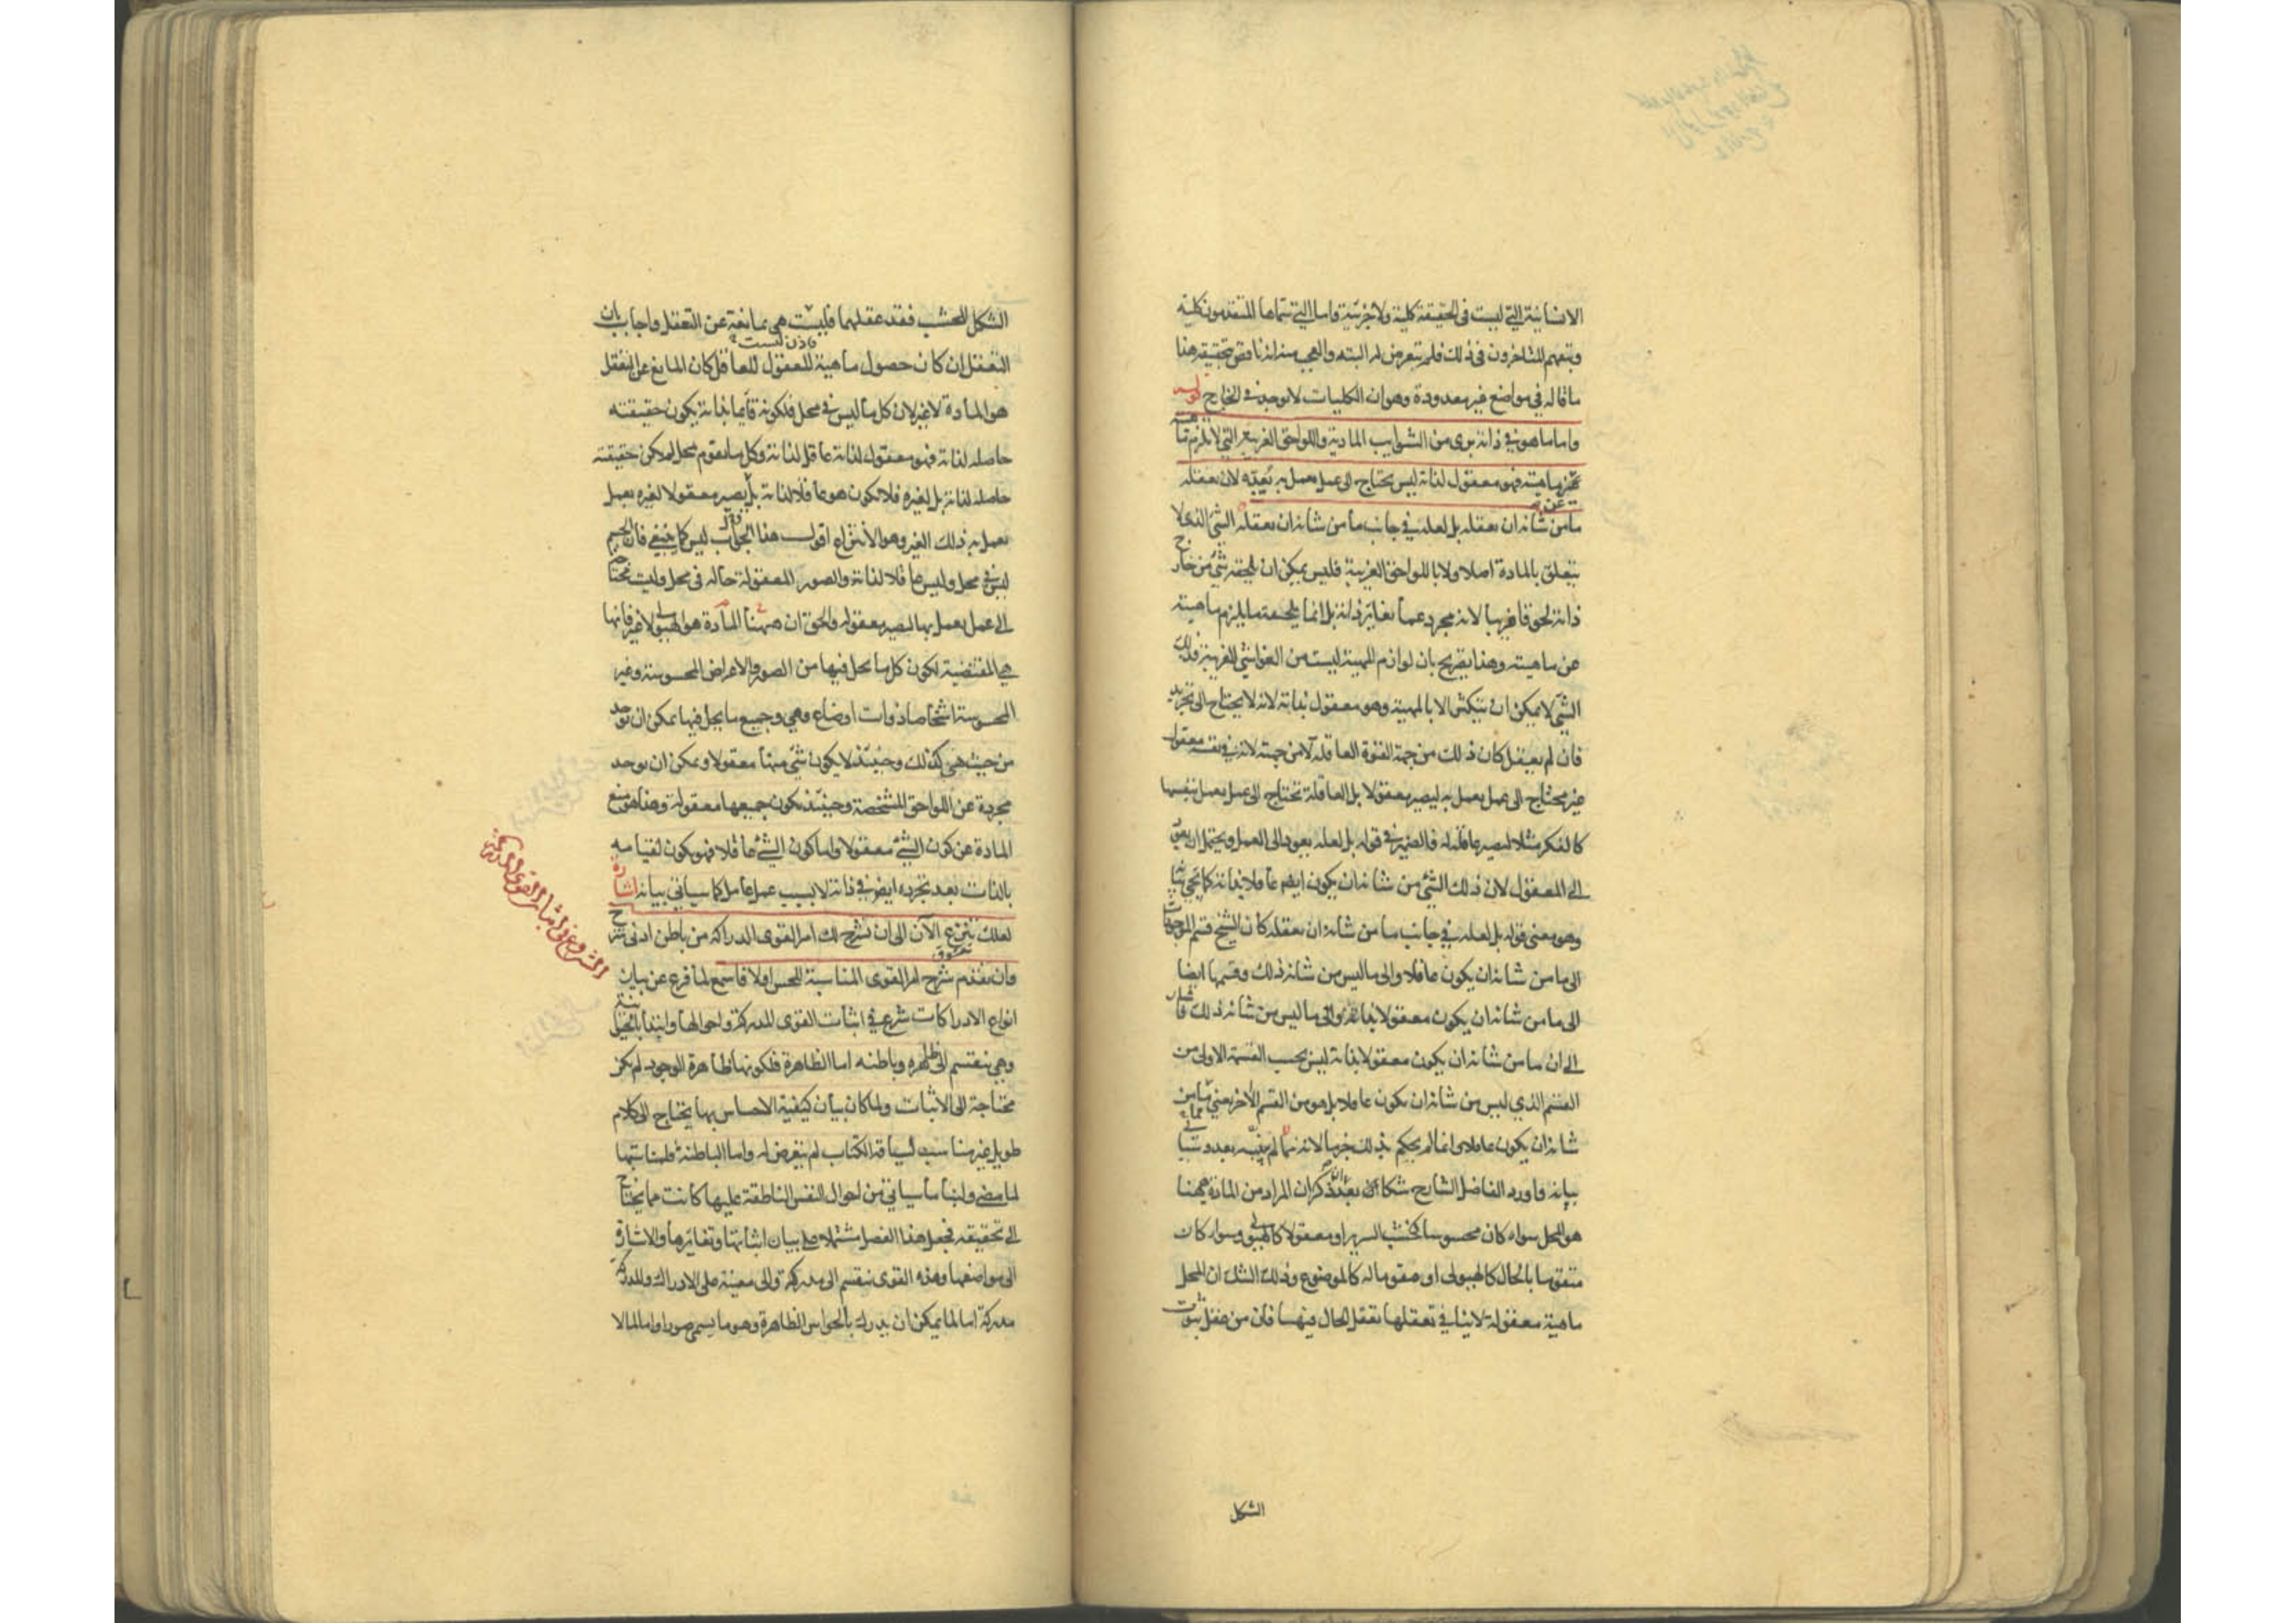 الانسانية التي ليست في الحقيقة كلية ولا جزئية واما التي سماها المتقدمون كلية
وتبعهم المتاخرون في ذلك فلم يتعرض له البته والعجب منه انه ناقض بتحقيقه هذا
ما قاله في مواضع غير معدودة وهو ان الكليات لا توجد في الخارج قوله
واما ما هو في ذاته برى من الشوايب المادية واللواحق الغريبة التي لا يلزم ماهيته
عن ماهيته فهو معقول لذاته ليس يحتاج الى عمل يعمل به يعده لان يعقله
ما من شانه ان يعقله بل لعله في جانب ما من شانه ان يعقله الشئ الذي لا
يتعلق بالمادة اصلا ولا باللواحق الغريبة فليس يمكن ان يلحقه شئ من خارج
ذاته لحوقا غريبا لانه مجرد عما يغاير ذاته بل انما يلحقه ما يلزم ماهيته
عن ماهيته وهذا تصريح بان لوازم المهية ليست من الغواشي الغريبة فذلك
الشئ لا يمكن ان يتكثر الا بالمهية وهو معقول بذاته لانه لا يحتاج الى تجريد
فان لم يعقل كان ذلك من جهة القوة العاقلة لا من جهته لانه في نفسه معقول
غير محتاج الى عمل يعمل به ليصير معقولا بل العاقلة تحتاج الى عمل يعمل بنفسها
كالفكر مثلا ليصير عاقلة له فالضمير في قوله بل لعله يعود الى العمل ويحتمل ان يعود
الى المعقول لان ذلك الشئ من شانه ان يكون ايضا عاقلا بذاته كما يجي بيانه
وهو معنى قوله بل لعله في جانب ما من شانه ان يعقله كان الشيخ قسم الموجودات
الى ما من شانه ان يكون عاقلا والى ما ليس من شانه ذلك وقسمها ايضا
الى ما من شانه ان يكون معقولا بذاته والى ما ليس من شانه ذلك فاشار
الى ان ما من شانه ان يكون معقولا بذاته ليس بحسب القسمة الاولى من
القسم الذي ليس من شانه ان يكون عاقلا بل هو من القسم الاخر يعني مما من
شانه ان يكون عاقلا وانما لم يحكم بذلك جزما لانه مما لم يبينه بعد وسياتي
بيانه واورد الفاضل الشارح شكا بعد ان ذكر ان المراد من المادة ههنا
هو المحل سواء كان محسوسا كخشب السرير او معقولا كالهيولى وسواء كان
متقوما بالحال كالهيولى او مقوما له كالموضوع وذلك الشك ان المحل
ماهية معقولة لا ينافي تعقلها تعقل الحال فيها فان من عقل ثبوت
الشكل
الشكل للخشب فقد عقلهما فليست هي بمانعة عن التعقل واجاب بان
التعقل ان كان حصول ماهية المعقول للعاقل كان المانع عن التعقل
هو المادة لا غير لان كل ما ليس في محل فلكونه قايما بذاته يكون حقيقته
حاصله لذاته فهو معقول لذاته عاقل لذاته وكل ما يقوم بمحل لم يكن حقيقته
حاصله لذاته بل لغيره فلا يكون هو عاقلا لذاته بل يصير معقولا لغيره بعمل
يعمل به ذلك الغير وهو الانتزاع اقول هذا الجواب ليس كما ينبغي فان الجسم
ليس في محل وليس عاقلا لذاته والصور المعقولة حاله في محل وليست محتاجة
الى عمل يعمل بها لتصير معقولة والحق ان ههنا المادة هو الهيولى لا غير فانها
هي المقتضية لكون كل ما يحل فيها من الصور والاعراض المحسوسة وغير
المحسوسة اشخاصا ذوات اوضاع وهي وجميع ما يحل فيها يمكن ان توجد
من حيث هي كذلك وحينئذ لا يكون شئ منها معقولا ويمكن ان توجد
مجردة عن اللواحق المشخصة وحينئذ يكون جميعها معقولة وهذا هو منع
المادة عن كون الشئ معقولا واما كون الشئ عاقلا فهو يكون لقيامه
بالذات بعد تجرده ايضا في ذاته لا بسبب عمل عامل كما سياتي بيانه اشارة
لعلك تنزع الآن الى ان نشرح لك امر القوى الدراكه من باطن ادنى شرح
وان نقدم شرح امر القوى المناسبة للحس اولا فاسمع لما فرغ عن بيان
انواع الادراكات شرع في اثبات القوى المدركة واحوالها وابتدأ بالحيوانية
وهي تنقسم الى ظاهرة وباطنه اما الظاهرة فلكونها ظاهرة الوجود لم يكن
محتاجة الى الاثبات ولما كان بيان كيفية الاحساس بها يحتاج الى كلام
طويل غير مناسب لسياقة الكتاب لم يتعرض له واما الباطنة فلمناسبتها
لما مضى ولبناء ما سياتي من احوال النفس الناطقة عليها كانت مما يحتاج
الى تحقيقه فجعل هذا الفصل مشتملا على بيان اثباتها وتغايرها والاشارة
الى مواضعها وهذه القوى تنقسم الى مدركة والى معينة على الادراك والمدركة
مدركة اما لما يمكن ان يدرك بالحواس الظاهرة وهو ما يسمى صورا واما لما لا
الشروع في اثبات القوى المدركة